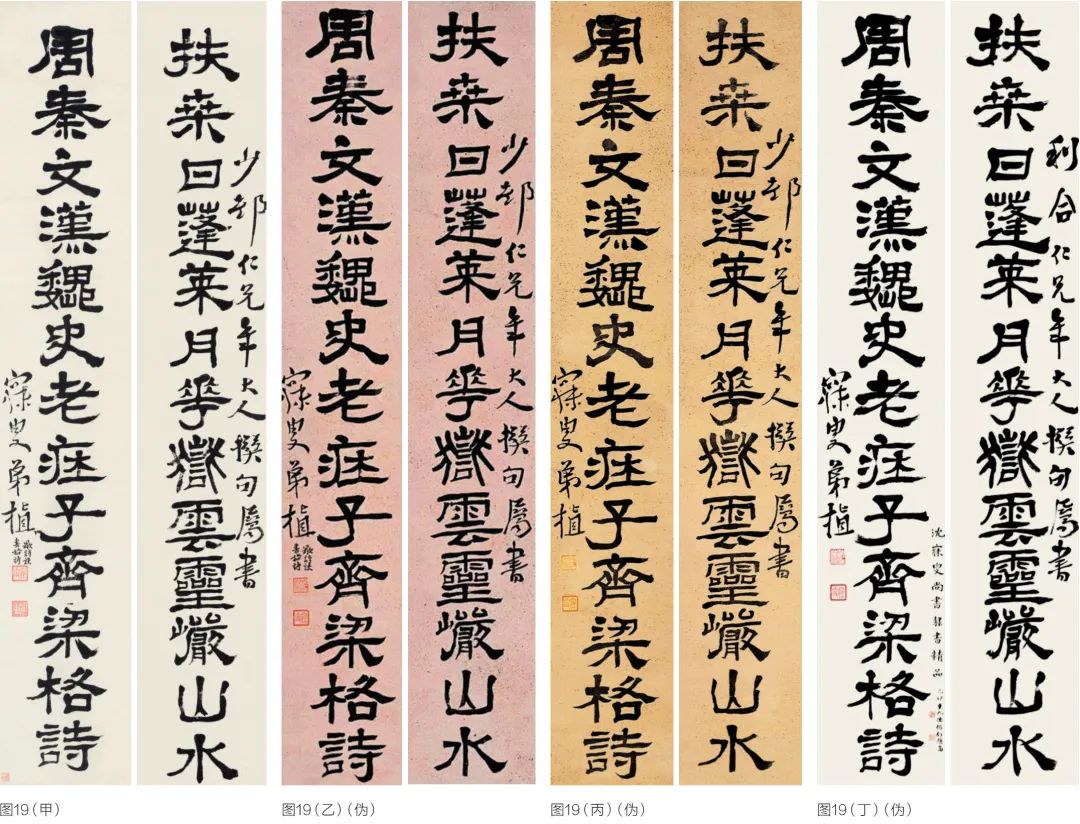 扶桒日蓬萊月華嶽雲靈巖山水
少邨仁兄年大人撰句屬書
周秦文漢魏史老莊子齊梁格詩
寐叟弟植
图19（甲）
扶桒日蓬萊月華嶽雲靈巖山水
少邨仁兄年大人撰句屬書
周秦文漢魏史老莊子齊梁格詩
寐叟弟植
图19（乙）（伪）
扶桒日蓬萊月華嶽雲靈巖山水
少邨仁兄年大人撰句屬書
周秦文漢魏史老莊子齊梁格詩
寐叟弟植
图19（丙）（伪）
扶桒日蓬萊月華嶽雲靈巖山水
利合仁兄年大人撰句屬書
周秦文漢魏史老莊子齊梁格詩
寐叟弟植
沈寐叟尚書隸書精品
图19（丁）（伪）